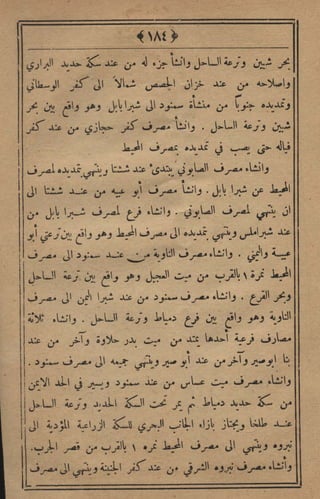 ﴿١٨٤﴾
بحر شبين وترعة الساحل وانشأ جزء له من عند سكة حديد البراري
واصلاحه من عند خزان الجصص شمالاً الى كفر الوسطاني
وتمديده جنوباً من منشأة سمنود الى شبرا بابل وهو واقع بين بحر
شبين وترعة الساحل . وانشأ مصرف كفر حجازي من عند كفر
فياله حتى يصب في تمديده بمصرف المحيط
وانشاء مصرف الصابوني يبتدئ عند ششتا وينتهي بتمديده لمصرف
المحيط عن شبرا بابل . وانشأ مصرف أبو عبيه من عند ششتا الى
ان ينتهي لمصرف الصابوني . وانشاء فرع لمصرف شبرا بابل من
عند شبراملس وينتهي بتمديده الى مصرف المحيط وهو واقع بين ترعتي أبو
عيسة واليمني . وانشاء مصرف الناوية من عند سمنود الى مصرف
المحيط نمرة ١ بالقرب من ميت العجيل وهو واقع بين ترعة الساحل
وبحر القرع . وانشاء مصرف سمنود من عند شبرا اليمن الى مصرف
الناوية وهو واقع بين فرع دمياط وترعة الساحل . وانشاء ثلاثة
مصارف فرعية أحدها يمتد من ميت بدر حلاوة وآخر من عند
بنا ابوصير وآخر من عند أبو صير وينتهي جميعه الى مصرف سمنود .
وانشاء مصرف ميت عساس من عند سمنود ويسير في الحد الايمن
من سكة حديد دمياط ثم يمر تحت السكة الحديد وترعة الساحل
عند طلخا ويجتاز بازاء الجانب البحري للسكة الزراعية المؤدية الى
نبروه وينتهي الى مصرف المحيط نمره ١ بالقرب من قصر الجرب.
وأنشاء مصرف نبروه الشرقي من عند كفر الجنينة وينتهي الى مصرف